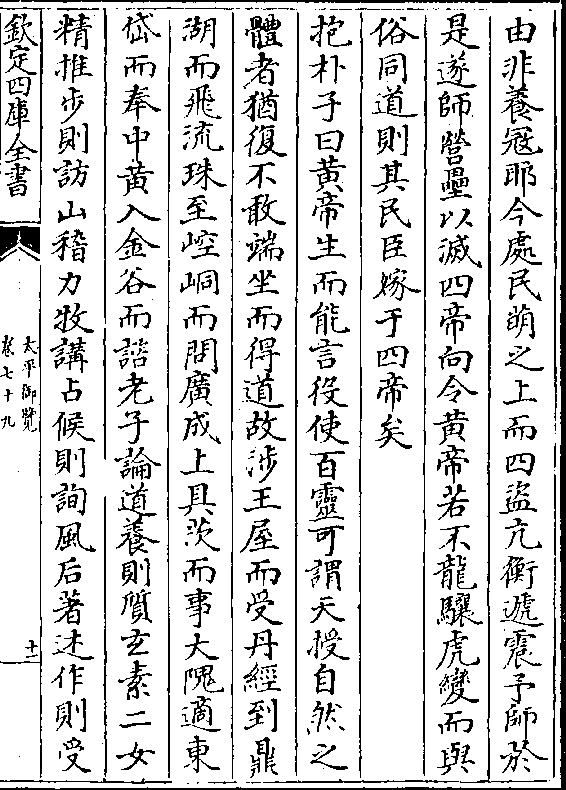 由非養冦耶今處民萌之上而四盜亢衡遞震予師於
是遂師營壘以滅四帝向令黄帝若不龍驤虎變而與
俗同道則其民臣嫁于四帝矣
抱朴子曰黄帝生而能言役使百靈可謂天授自然之
體者猶復不敢端坐而得道故涉王屋而受丹經到鼎
湖而飛流珠至崆峒而問廣成上具茨而事大隗適東
岱而奉中黄入金谷而諮老子論道養則質玄素二女
精推步則訪山稽力牧講占候則詢風后著述作則受
欽定四庫全書
太平御覽
卷七十九
十二